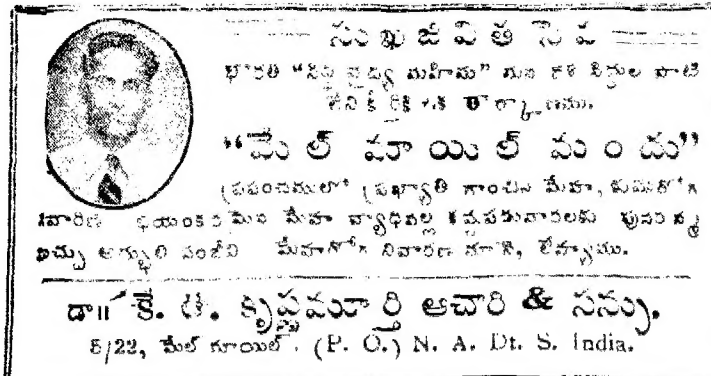 సుఖజీవిత సేవ
భారతి "సిద్ధ వైద్య మహిమ" మన దేశ సిద్ధుల
"మేల్ మాయిల్ మందు"
ప్రపంచములో ప్రఖ్యాతి గాంచిన మేహ, కుసుమరోగ
నివారిణి భయంకరమైన మేహ వ్యాధివల్ల కష్టపడువారలకు పునర్జన్మ
ఇచ్చు అద్భుత సంజీవి మేహరోగ నివారణ లేహ్యము.
డా॥ కే. కృష్ణమూర్తి ఆచారి & సన్సు,
5/22, మేల్ మాయిల్. (P. O.) N. A. Dt. S. India.